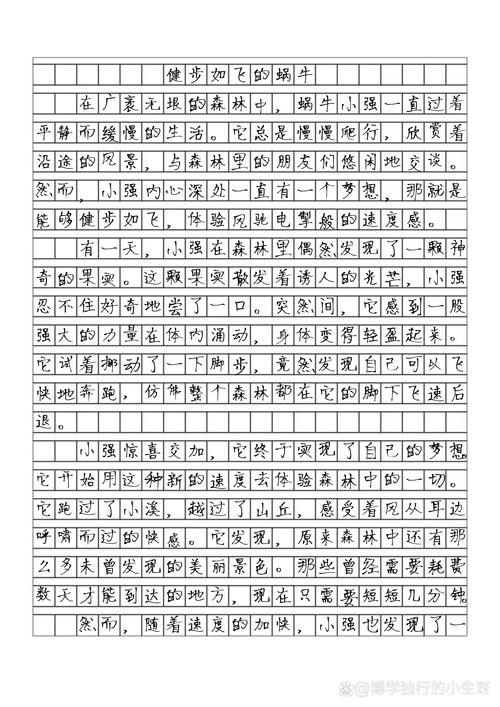 健步如飞的蜗牛
在广袤无垠的森林中，蜗牛小强一直过着
平静而缓慢的生活。它总是慢慢爬行，欣赏着
沿途的风景，与森林里的朋友们悠闲地交谈。
然而，小强内心深处一直有一个梦想，那就是
能够健步如飞，体验风驰电掣般的速度感。
有一天，小强在森林里偶然发现了一颗神
奇的果实。这颗果实散发着诱人的光芒，小强
忍不住好奇地尝了一口。突然间，它感到一股
强大的力量在体内涌动，身体变得轻盈起来。
它试着挪动了一下脚步，竟然发现自己可以飞
快地奔跑，仿佛整个森林都在它的脚下飞速后
退。
小强惊喜交加，它终于实现了自己的梦想。
它开始用这种新的速度去体验森林中的一切。
它跑过了小溪，越过了山丘，感受着风从耳边
呼啸而过的快感。它发现，原来森林中还有那
么多未曾发现的美丽景色。那些曾经需要耗费
数天才能到达的地方，现在只需要短短几分钟。
然而，随着速度的加快，小强也发现了一
@博学独行的小生呀